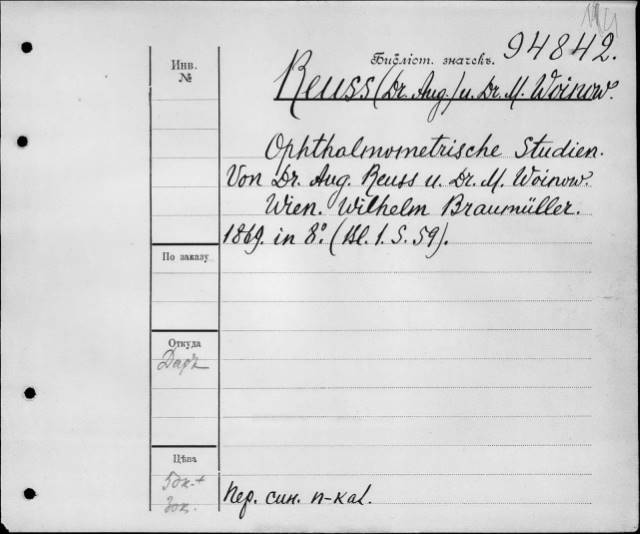 Библіот. значекъ. 94842.
Инв.
№
Reuss (Dr. Aug.) u. Dr. M. Woinow.
Ophthalmometrische Studien.
Von Dr. Aug. Reuss u. Dr. M. Woinow.
Wien. Wilhelm Braumüller.
1869. in 8°. (Bl. 1. S. 59).
По заказу
Откуда
Даръ
Цѣна
Пер. син. п-кал.